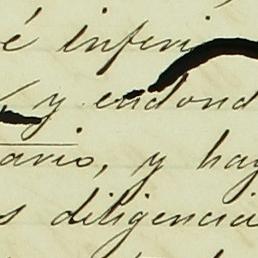 é inferi
y endond
ario, y hag
s diligencia